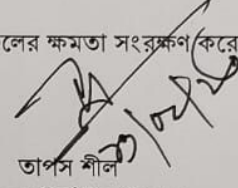 লের ক্ষমতা সংরক্ষণ করে
তাপস শীল